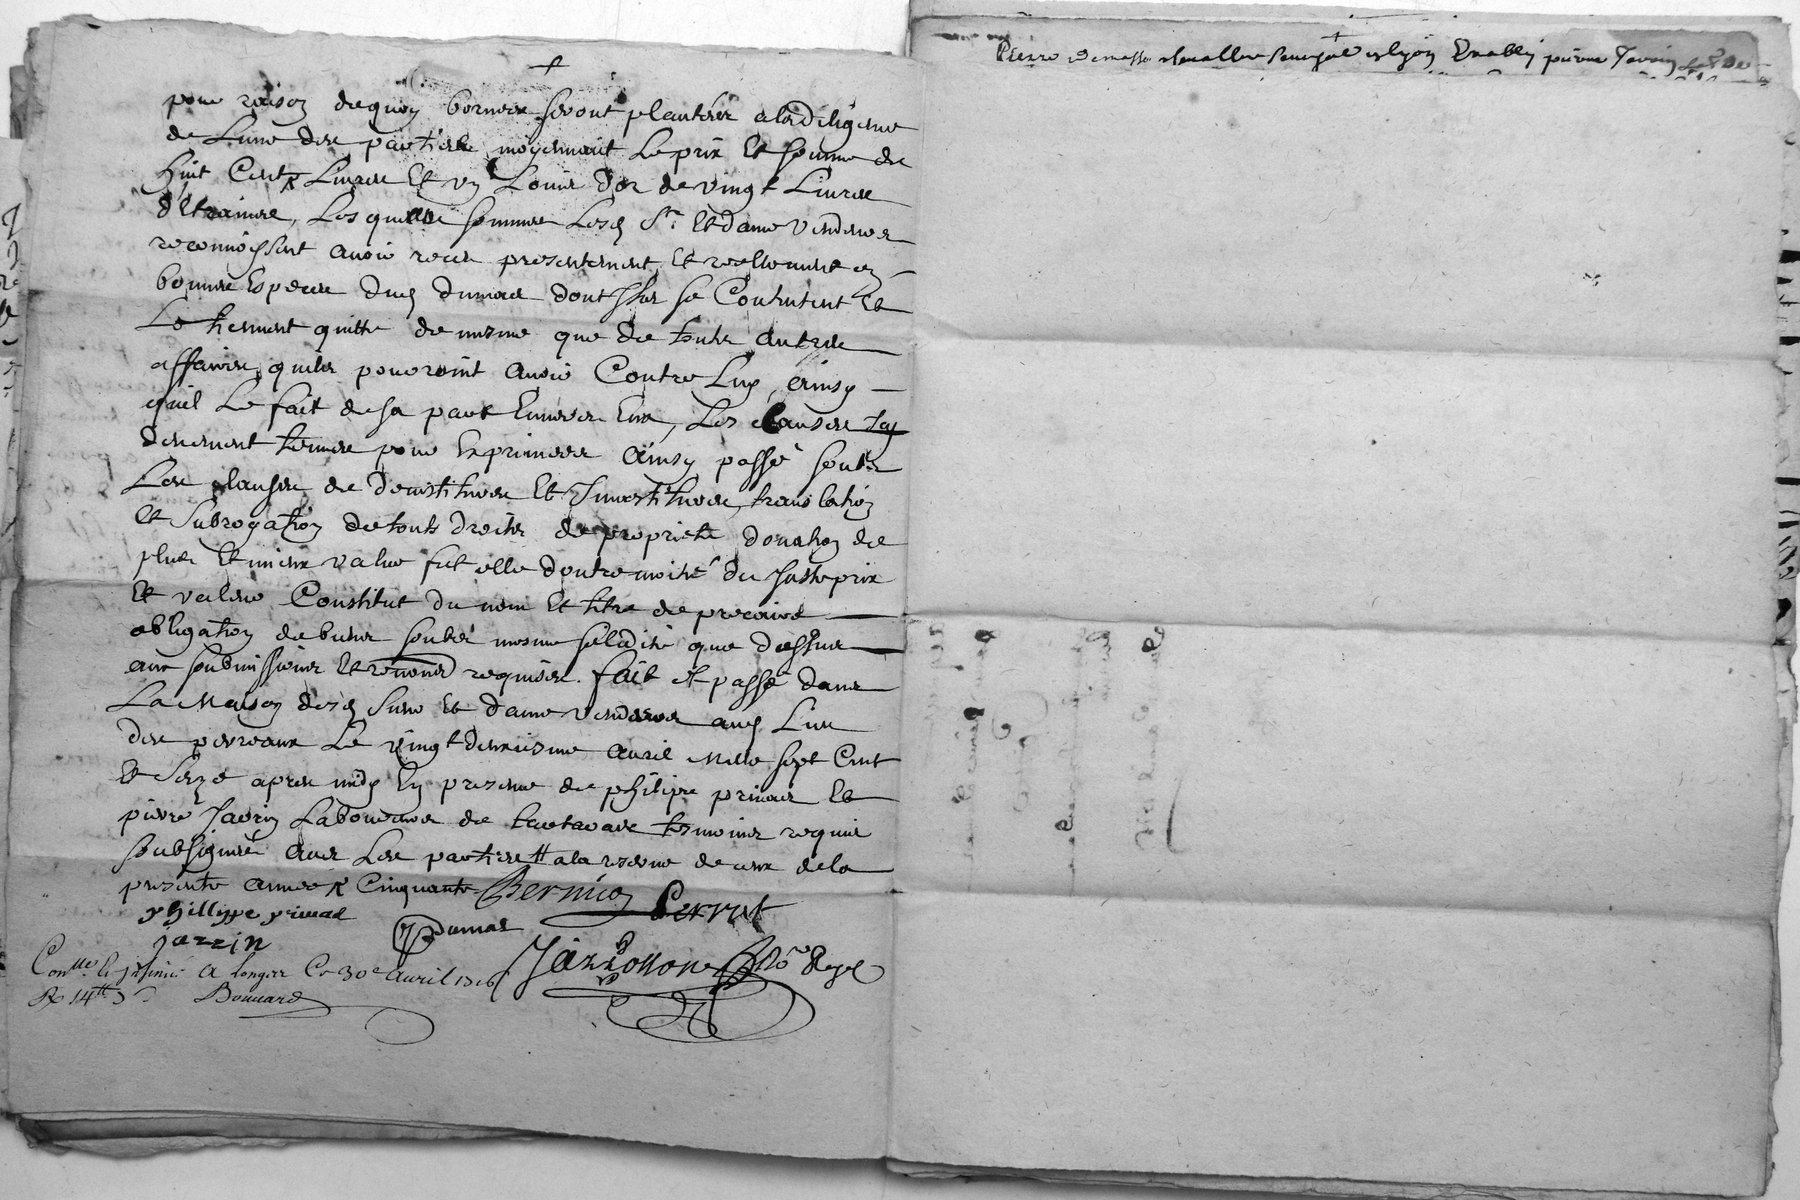 pour raison dequoy bornes seront plantées a la diligence
de L'une des parties moyennant Le prix Et somme de
huit Cents Livres Et un Louis d'or de vingt Livres
d'Etraines, Les quelles sommes Lesd Sr Et dame vendeurs
reconnoissent avoir receu presentement, Et reellement en
bonnes Especes dud dumas dont Ils se Contentent Et
Le tiennent quitte de mesme que de toutes autres
affaires quils pouroint avoir Contre Luy, ainsy
quil Le fait de sa part Envers Eux, Les clauses Icy
devement tenues pour Exprimées Ainsy passé soubs
Les clauses de devestitures Et Investitures, translation
Et Subrogation de touts droits de proprieté donation de
plus Et mieux value fut elle d'outre moitié du Juste prix
Et valeur Constitut du nom Et titre de precaire
obligation de biens soubs mesme solidité que dessus
aux soubmissions Et renoncⁿˢ requises. fait Et passé dans
La Maison desd Sieur Et dame vendeurs aud Lieu
des perreaux Le vingt deuxiesme avril Mille sept Cent
Et Seize apres midy En presence de philipe primat Et
pierre Jarrin Laboureurs de temoins requis
soubsignés avec Les parties # a la reserve de ceux de la
presente année x Cinquante Bernico Perrut
phillype primat
jarrin Dumas
Conllé a Longes Ce 30e Avril 1716 Notre Royal
R 14tt 3s Bonnard
Pierre demasso chevallier seneschal de lyon Estably pierre Jarrin